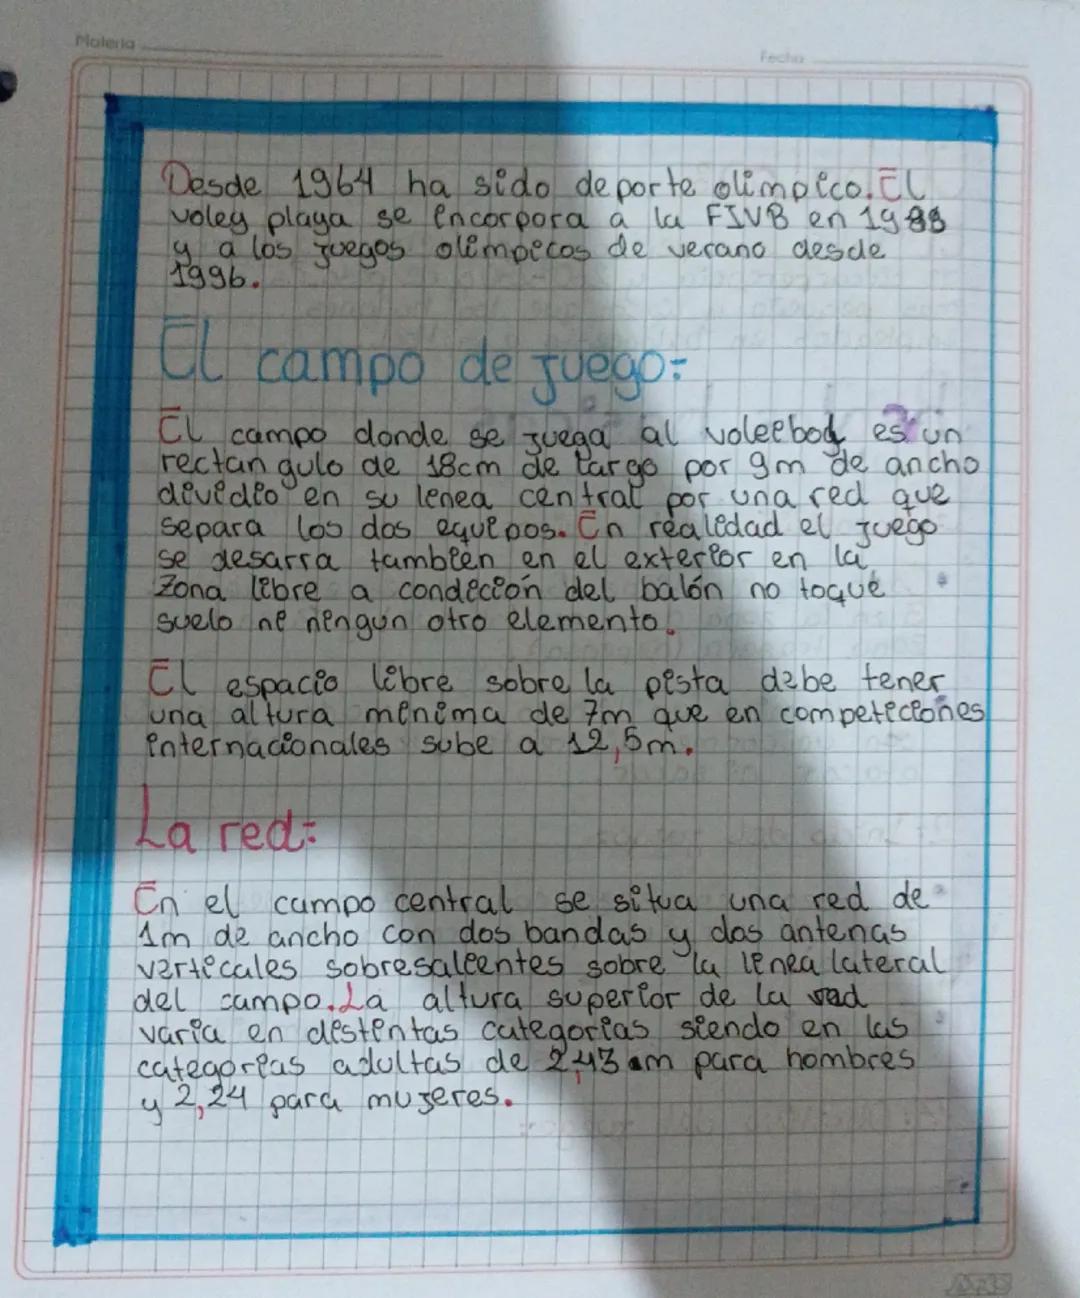 Materia
Fecha
Desde 1964 ha sido deporte olimpico. El
voley playa se incorpora a la FIVB en 1988
y a los juegos olimpicos de verano desde
1996.
El campo de juego:
El campo donde se juega al voleeboy es un
rectangulo de 18cm de largo por 9m de ancho
dividio en su lenea central por una red que
separa los dos equipos. En realidad el juego
se desarra tambien en el exterior en la
zona libre a condición del balón no toque
suelo ni ningun otro elemento.
El espacio libre sobre la pista debe tener
una altura minima de 7m que en competiciones
internacionales sube a 12,5m.
La red:
En el campo central se situa una red de
1m de ancho con dos bandas y dos antenas
verticales sobresalientes sobre la linea lateral
del campo. La altura superior de la red
varia en distintas categorias siendo en las
categorias adultas de 2,43 m para hombres
y 2,24 para mujeres.